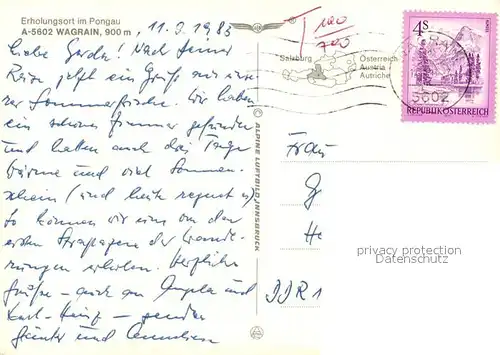 Erholungsort im Pongau
A-5602 WAGRAIN, 900 m
11. 1983
Liebe Gerda! Nach Deiner
Reise jetzt ein Gruß aus unserer
Sommerfrische. Wir haben
ein schönes Zimmer gefunden
und haben auch die Tage
Wärme und viel Sonnen-
schein (und heute regnet es)
So können wir uns von den
ersten Strapazen der Wande-
rungen erholen. Herzliche
Grüße – auch an Angela und
Karl-Heinz – senden
Günter und Annelies
T 100/700
Salzburg
Österreich
Austria
Autriche
5602
4 S
REPUBLIK ÖSTERREICH
© ALPINE LUFTBILD, INNSBRUCK
Frau
G
He
DDR 1
privacy protection
Datenschutz